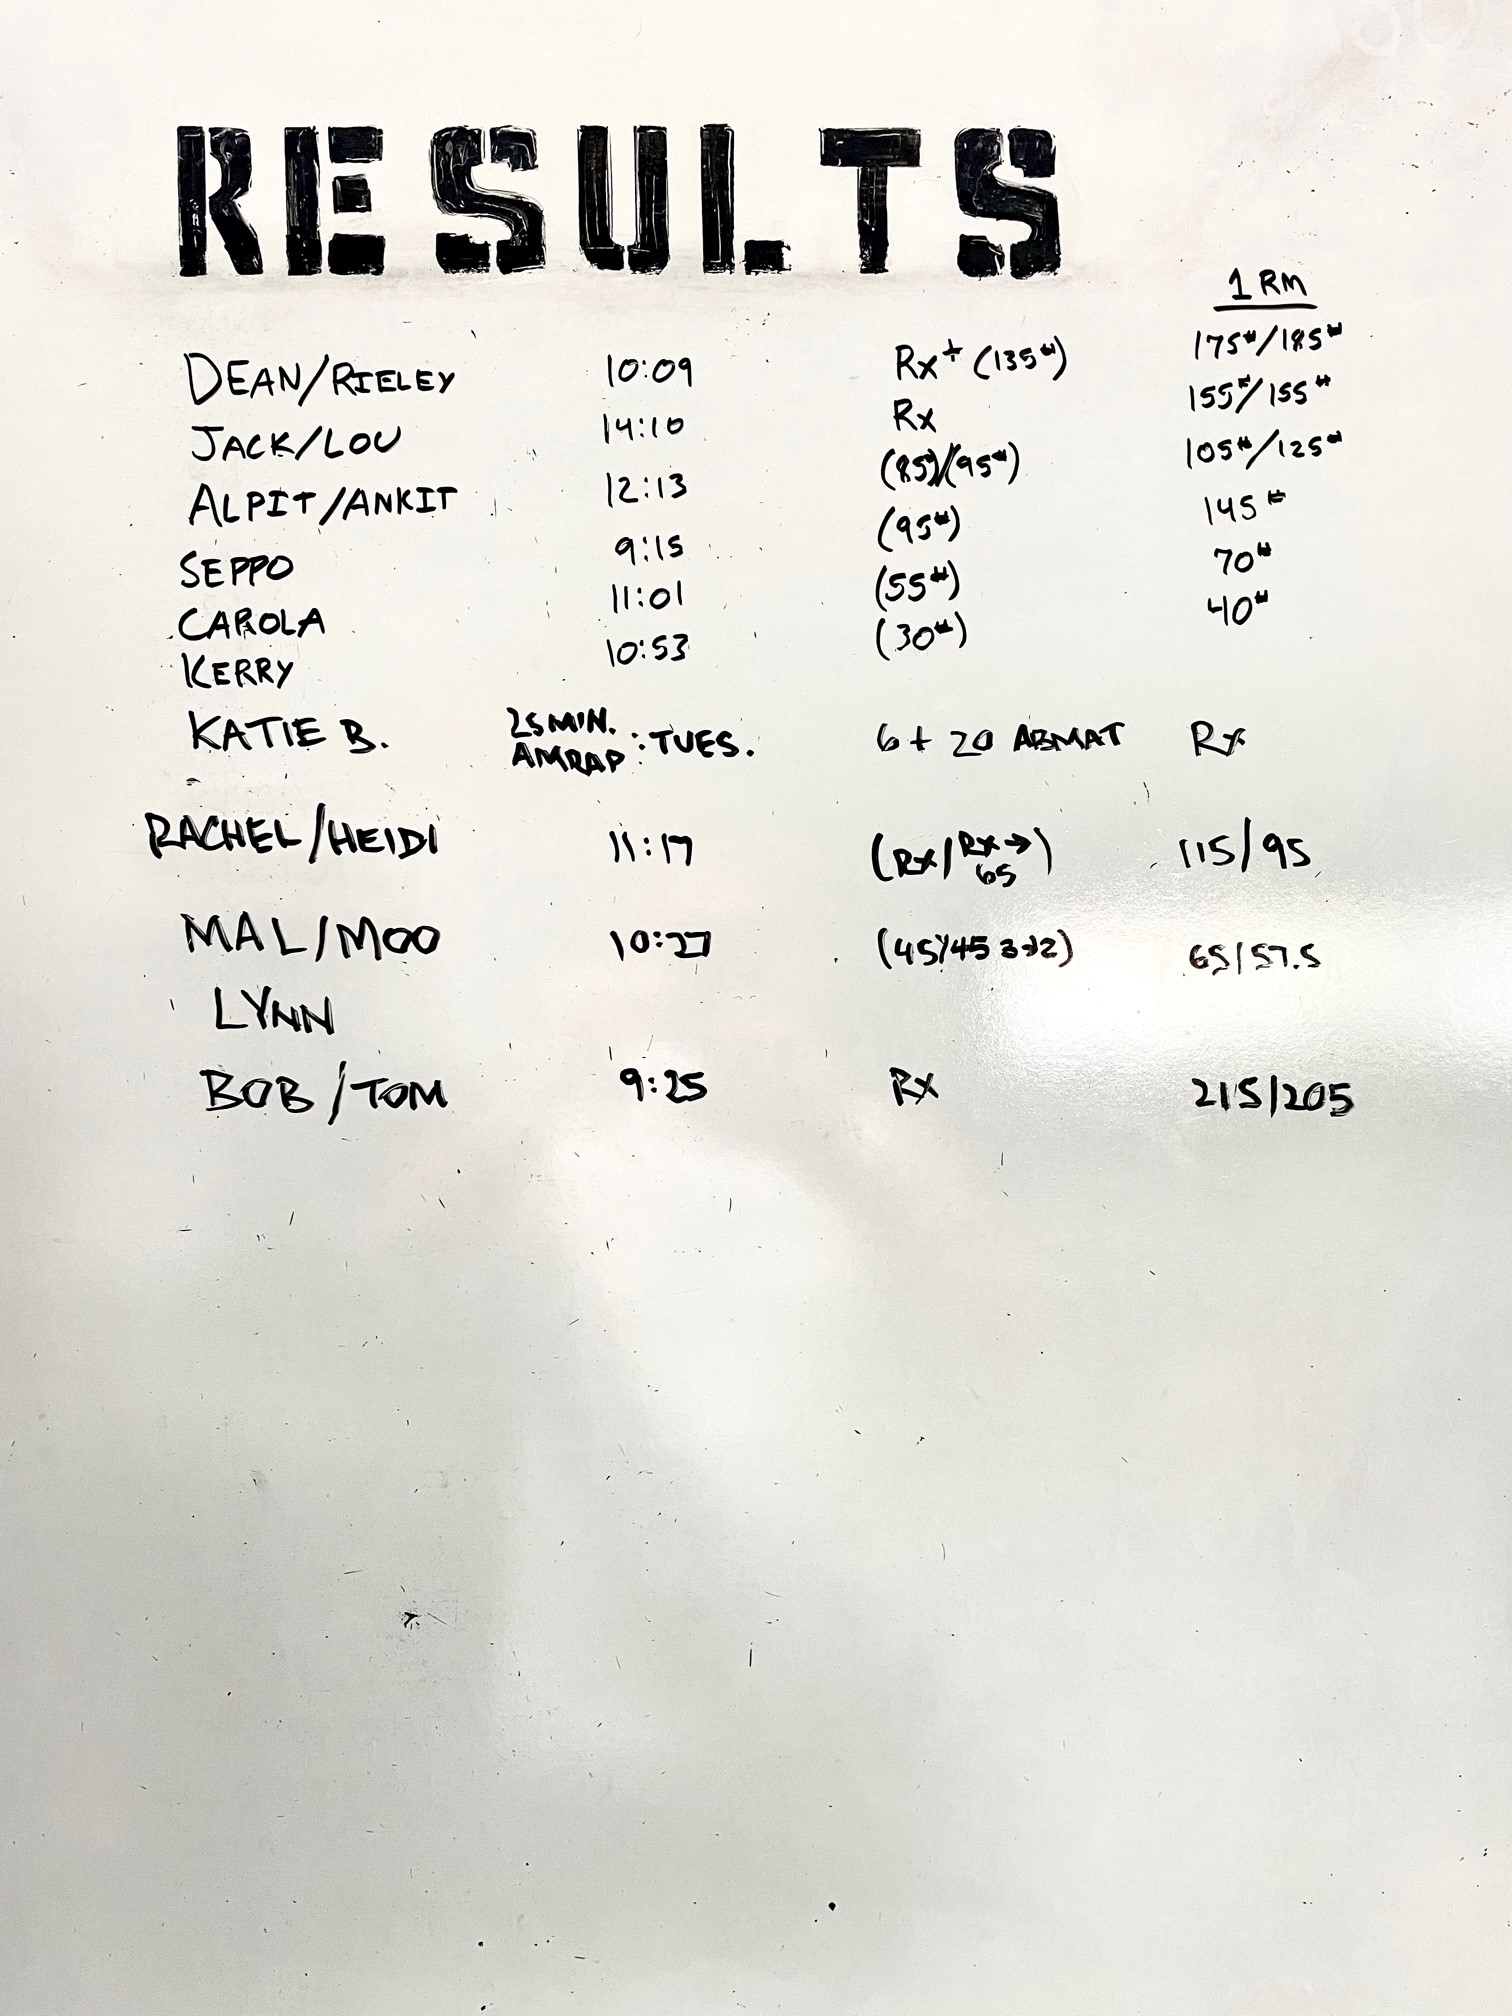 RESULTS
1 RM
DEAN/RIELEY 10:09 Rx+ (135#) 175#/185#
JACK/LOU 14:10 Rx 155#/155#
ALPIT/ANKIT 12:13 (85)/(95#) 105#/125#
SEPPO 9:15 (95#) 145#
CAROLA 11:01 (55#) 70#
KERRY 10:53 (30#) 40#
KATIE B. 25 MIN. AMRAP : TUES. 6 + 20 ABMAT Rx
RACHEL/HEIDI 11:17 (Rx/Rx→65) 115/95
MAL/MOO 10:27 (45/45 ) 65/57.5
LYNN
BOB/TOM 9:25 Rx 215/205